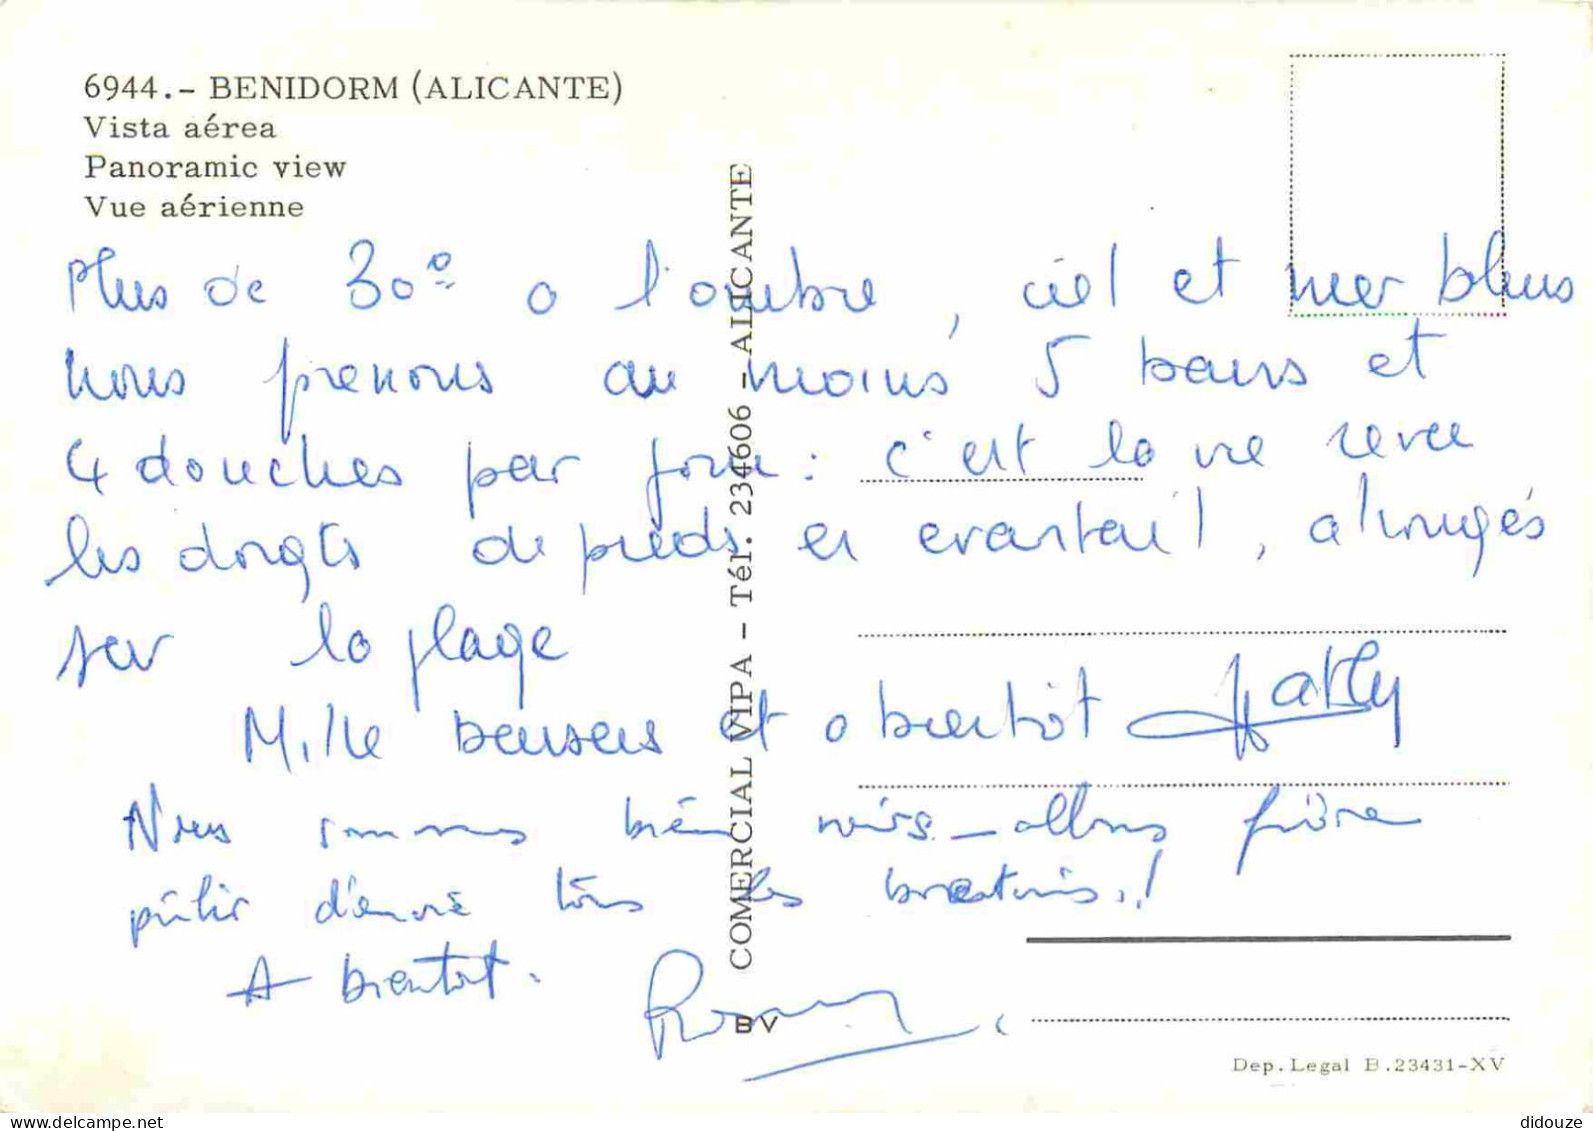 6944.- BENIDORM (ALICANTE)
Vista aérea
Panoramic view
Vue aérienne
Plus de 30° a l'ombre, ciel et mer bleus
nous prenons au moins 5 bains et
4 douches par jour : c'est la vie revee
les doigts de pieds en evantail, alongés
sur la plage
Mille baisers et a bientôt Kathy
Nous sommes bien noirs - allons faire
pâlir d'envie tous les bretons..!
A bientot.
COMERCIAL VIPA - Tél. 234606 - ALICANTE
BV
Dep. Legal B.23431-XV
didouze